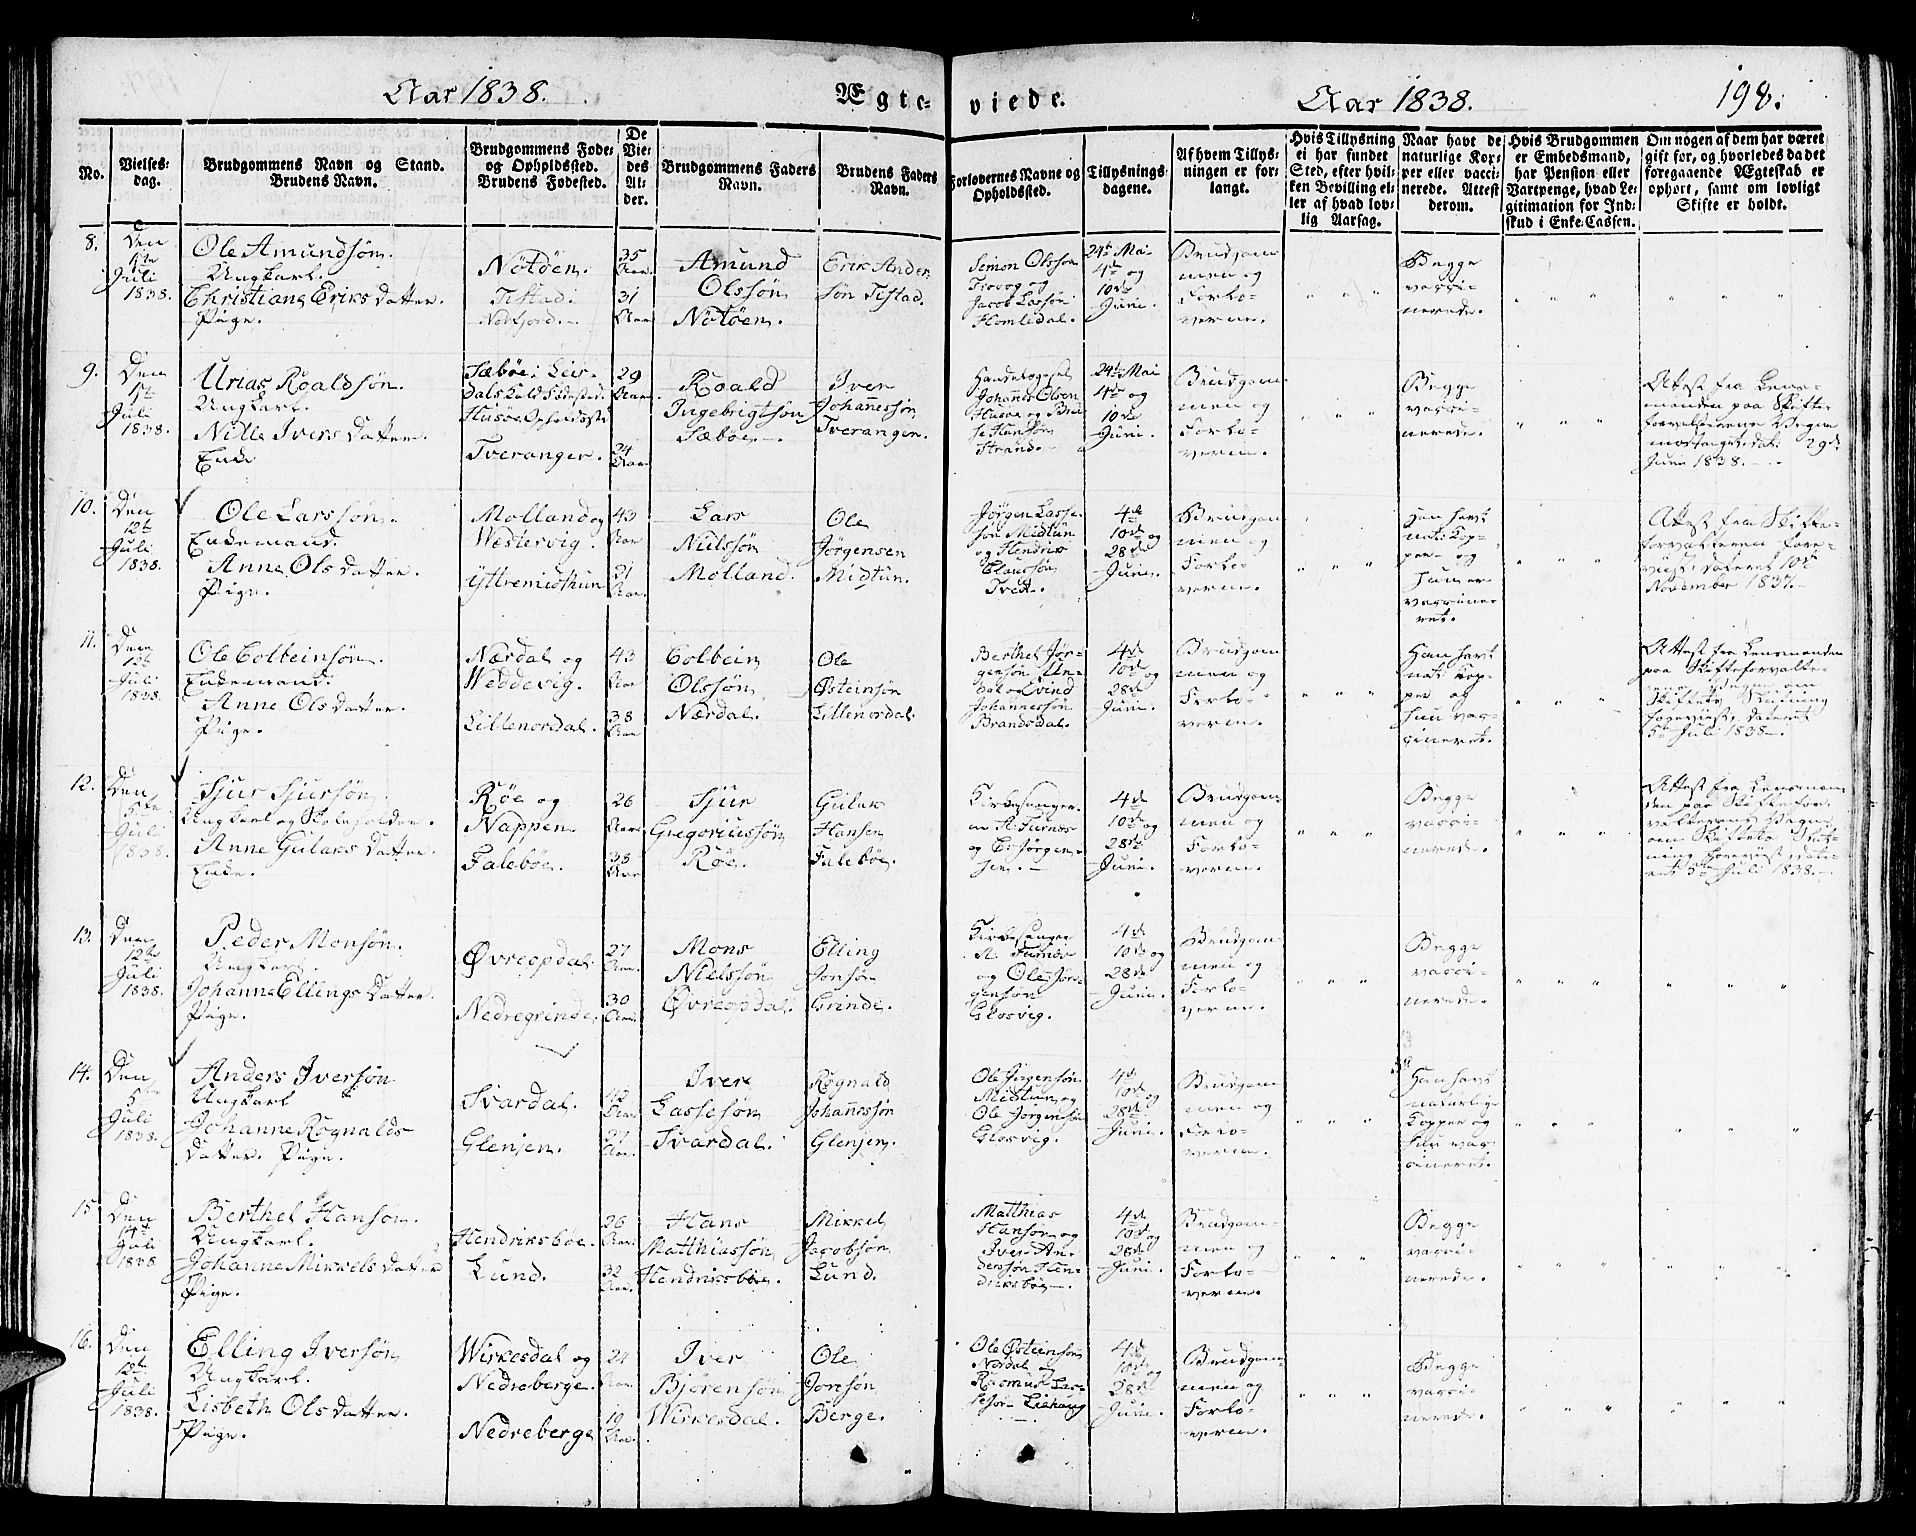 Aar 1838. Ægte- viede. Aar 1838. 198.
No.
Vielses-
dag.
Brudgommens Navn og Stand.
Brudens Navn.
Brudgommens Føde-
og Opholdssted.
Brudens Fødested.
De
Vie-
des
Al-
der.
Brudgommens Faders
Navn.
Brudens Faders
Navn.
Forlovernes Navne og
Opholdssted.
Tillysnings-
dagene.
Af hvem Tillys-
ningen er for-
langt.
Hvis Tillysning
ei har fundet
Sted, efter hvil-
ken Bevilling el-
ler af hvad lov-
lig Aarsag.
Naar havt de
naturlige Kop-
per eller vacci-
nerede. Attest
derom.
Hvis Brudgommen
er Embedsmand,
har Pension eller
Vartpenge, hvad Le-
gitimation for Ind-
skud i Enke-Cassen.
Om nogen af dem har været
gift før, og hvorledes da det
foregaaende Ægteskab er
ophørt, samt om lovligt
Skifte er holdt.
8.
Den
Juli
1838.
Ole Amundsøn.
Ungkarl.
Christiane Eriks Datter.
Pige.
Nötöen.
Tistad i
Nordfjord.
35
Aar.
31
Aar.
Amund
Olssøn
Nötöen.
Erik Ander-
søn Tistad.
Simon Olssøn
Trovog og
Jacob Lassøn
Homledal.
24de Mai
4de og
10de
Juni.
Brudgom-
men og
Forlo-
verne.
Begge
vacci-
nerede.
9.
Den
Juli
1838.
Urias Roaldsøn.
Ungkarl.
Nille Ivers Datter.
Enke
Sæbøe i Leir-
dals Kald Fødested.
Husøe Opholdssted
Tveranger.
29
Aar.
34
Aar.
Roald
Ingebrigtsøn
Sæbøe.
Iver
Johannessøn
Tverangen.
Johannes Olsen
Husøe og
Hansøn
Strand.
24de Mai
4de og
10de
Juni.
Brudgom-
men og
Forlo-
verne.
Begge
vacci-
nerede.
Attest fra Lens-
manden paa Skifte-
forvalterens Vegne
modtaget, dat. 29de
Juni 1838.
10.
Den
12te
Juli
1838.
Ole Larssøn.
Enkemand.
Anne Ols Datter.
Pige.
Molland og
Westervig.
Yttremidthun
43
Aar
21
Aar.
Lars
Nielssøn
Molland.
Ole
Jørgensen
Midtun.
Jørgen Lasse-
søn Midtun
og Hendrik
Claussøn
Tvet.
4de
10de og
28de
Juni.
Brudgom-
men og
Forlo-
verne.
Han havt
nat. Kop-
per og
hun er
vaccine-
ret.
Attest fra Skifte-
forvalteren fore-
viist, dateret 10de
November 1837.
11.
Den
12te
Juli
1838.
Ole Colbeinsøn.
Enkemand.
Anne Ols Datter.
Pige.
Nærdal og
Weddevig.
Lillenordal.
43
Aar
38
Aar.
Colbein
Olssøn
Nærdal.
Ole
Østeinsøn
Lillenordal.
Berthel Jør-
gensøn Un-
dal og Evind
Johannessøn
Brandsdal.
4de
10de og
28de
Juni.
Brudgom-
men og
Forlo-
verne.
Han havt
nat. Kop-
per og
hun vac-
cineret.
Attest fra Lensmanden
paa Skifteforvalte-
rens Vegne om
Skiftets Slutning
foreviist, dateret
5te Juli 1838.
12.
Den
5te
Juli
1838.
Sjur Sjursøn.
Ungkarl og Skoleholder.
Anne Gulaks Datter.
Enke.
Røe og
Nappen.
Falebøe.
26
Aar.
38
Aar
Sjur
Gregoriussøn
Røe.
Gulak
Hansen
Falebøe.
Kirkesanger-
ne A. Furnæs
og E. Jørgen-
sen.
4de
10de og
28de
Juni.
Brudgom-
men og
Forlo-
verne.
Begge
vacci-
nerede.
Attest fra Lensman-
den paa Skiftefor-
valterens Vegne
om Skiftets Slut-
ning foreviist, date-
ret 5te Juli 1838.
13.
Den
12te
Juli
1838.
Peder Monsøn.
Ungkarl.
Johanne Ellings Datter.
Pige.
Øvreopdal.
Nedregrinde.
27
Aar.
30
Aar.
Mons
Nielssøn
Øvreopdal.
Elling
Jonsøn
Grinde.
Kirkesanger
A. Furnæs
og Ole Jør-
gensøn
Glosvig.
4de
10de og
28de
Juni.
Brudgom-
men og
Forlo-
verne.
Begge
vacci-
nerede.
14.
Den
5te
Juli
1838.
Anders Iversøn
Ungkarl
Johanne Rognalds
Datter. Pige.
Svardal.
Glenjen.
Aar.
27
Aar.
Iver
Lassesøn
Svardal.
Rognald
Johannessøn
Glenjen.
Ole Jørgensøn
Midtun og
Ole Jørgensøn
Glosvig.
4de
10de og
28de
Juni.
Brudgom-
men og
Forlo-
verne.
Han havt
naturlige
Kopper og
hun vac-
cineret.
15
Den
14de
Juli
1838
Berthel Hansøn.
Ungkarl.
Johanne Mikkels Datter
Pige.
Hendriksbøe.
Lund.
26
Aar.
32
Aar.
Hans
Matthiassøn
Hendriksbøe.
Mikkel
Jacobsøn
Lund.
Matthias
Hansøn og
Iver An-
derssøn Hen-
driksbøe.
4de
10de og
28de
Juni.
Brudgom-
men og
Forlo-
verne.
Begge
vacci-
nerede.
16.
Den
12te
Juli
1838.
Elling Iversøn
Ungkarl.
Lisbeth Ols Datter.
Pige.
Wirkesdal og
Nedreberge.
Nedreberge
24
Aar.
19
Aar.
Iver
Bjørensøn
Wirkesdal.
Ole
Jonsøn
Berge.
Ole Østeinsøn
Nordal og
Rasmus Las-
sesøn Liehaug
4de
10de
28de
Juni.
Brudgom-
men og
Forlo-
verne.
Begge
vacci-
nerede.